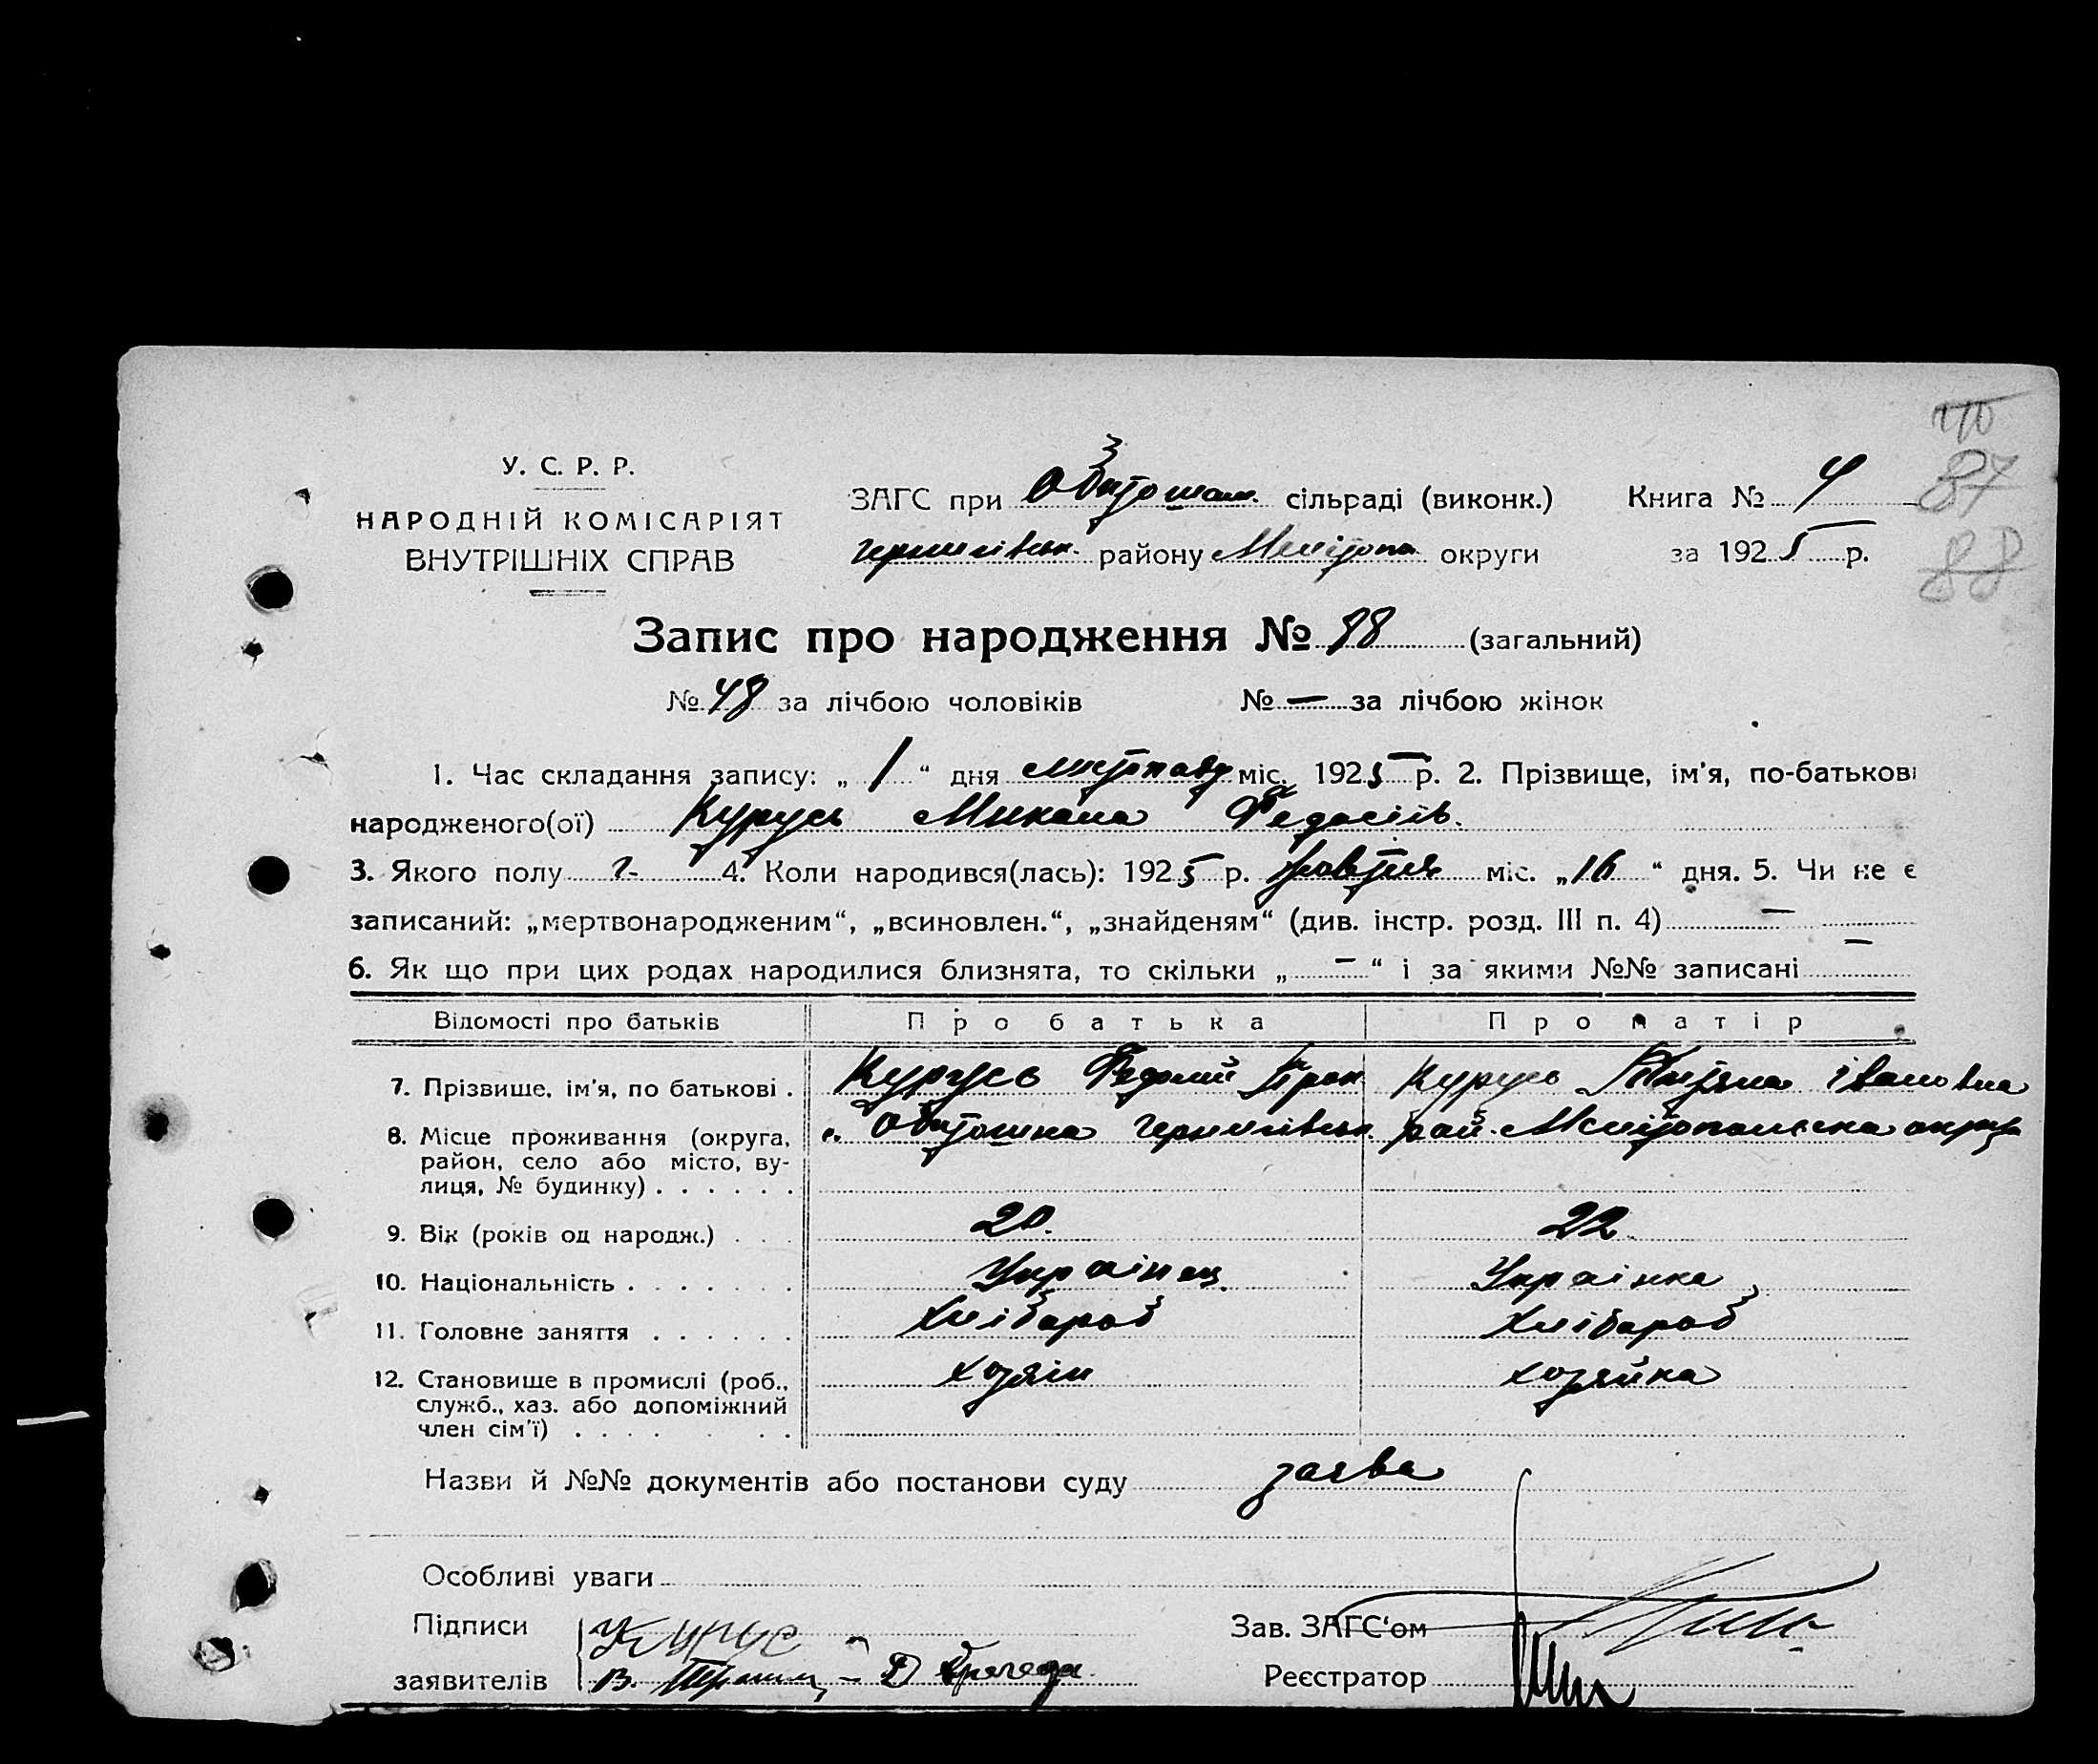 110
87
88
У. С. Р. Р.
НАРОДНІЙ КОМІСАРІЯТ
ВНУТРІШНІХ СПРАВ
ЗАГС при Обиточан. сільраді (виконк.) Книга № 4
Чернигівськ. району Меліtoп округи за 1925 р.
Запис про народження № 98 (загальний)
№ 48 за лічбою чоловіків № — за лічбою жінок
1. Час складання запису: „ 1 “ дня листопаду міс. 1925 р. 2. Прізвище, ім'я, по-батькові
народженого(ої) Курусь Микола Федосіів.
3. Якого полу ч. 4. Коли народився(лась): 1925 р. жовтня міс. „16 “ дня. 5. Чи не є
записаний: „мертвонародженим“, „всиновлен.“, „знайденям“ (див. інстр. розд. III п. 4) —
6. Як що при цих родах народилися близнята, то скільки „ – “ і за якими №№ записані —
Відомості про батьків Про батька Про матір
7. Прізвище, ім'я, по батькові . Курусь Федосій Курусь Тетяна Івановна
8. Місце проживання (округа, район, село або місто, ву- лиця, № будинку) . . . . . . с. Обиточна Чернигівськ. рай. Мелітопольська округ
9. Вік (років од народж.) . . . 20. 22.
10. Національність . . . . . . . Украінец. Украінка
11. Головне заняття . . . . . . Хлібороб Хлібороб
12. Становище в промислі (роб., служб., хаз. або допоміжний член сім'ї) . . . . . . . хозяін хозяйка
Назви й №№ документів або постанови суду заява
Особливі уваги
Підписи Курус Зав. ЗАГС‘ом
заявителів В. Реєстратор